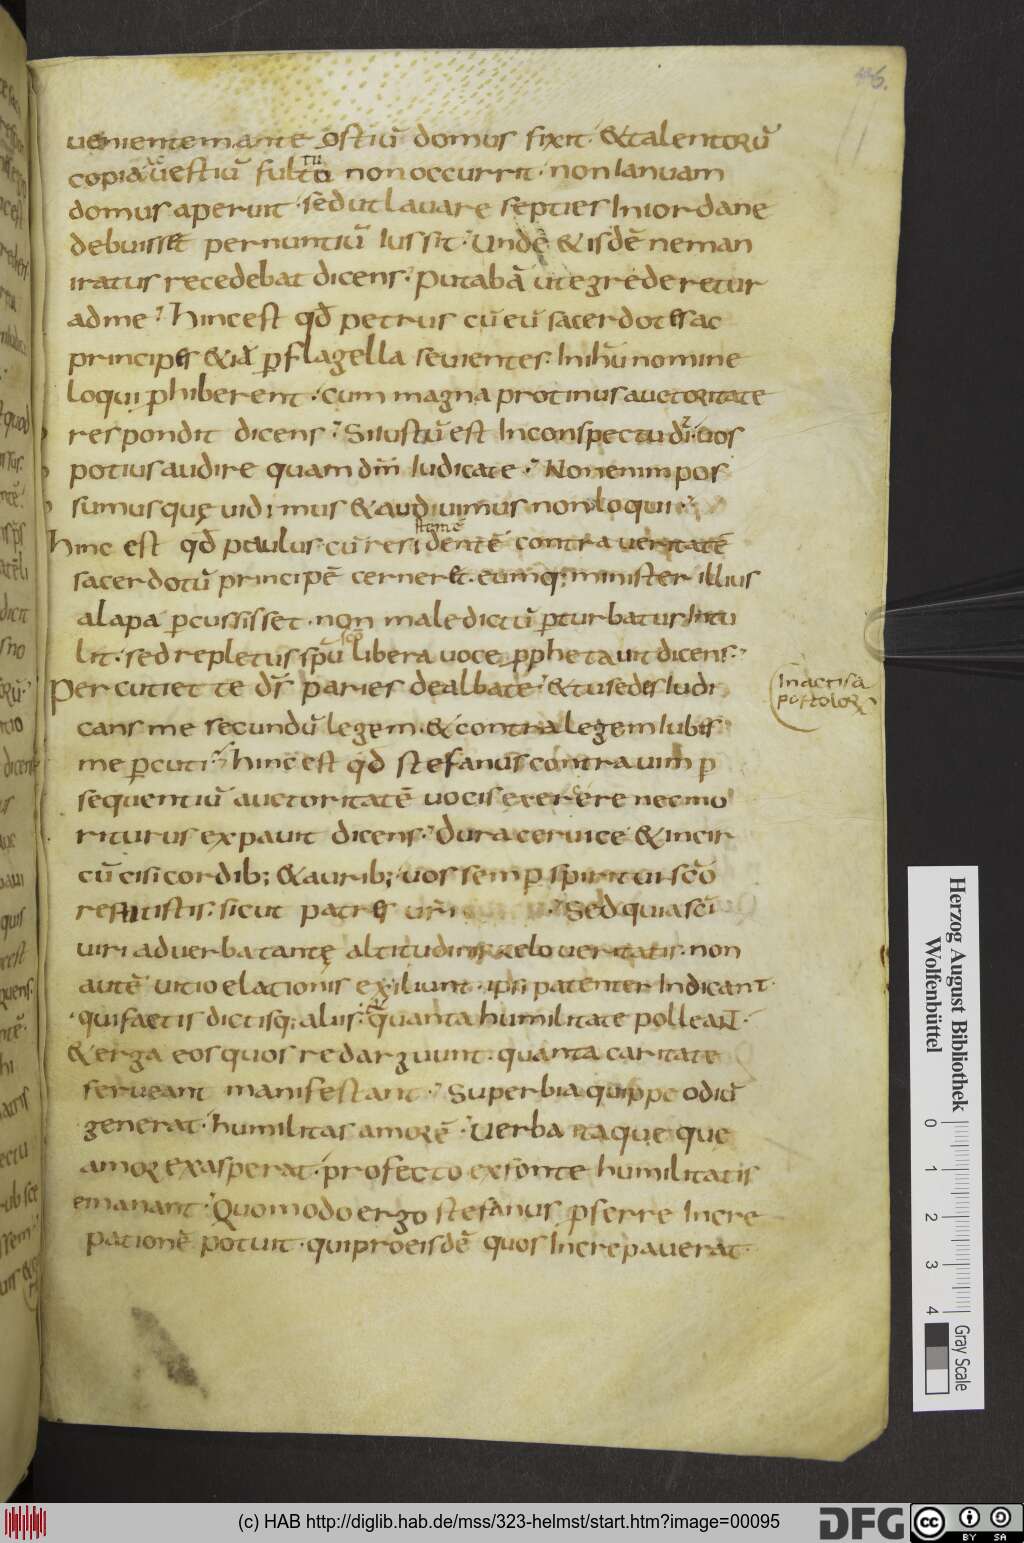 46.
uenientem ante ostiū domus fixit · & talentorū
copia uestiū subtu non occurrit · non ianuam
domus aperuit · sed ut lauare septies in iordane
debuisset per nuntiū iussit · Unde & isdē neman
iratus recedebat dicens · Putabā ut egrederetur
ad me · hinc est qđ petrus cū eū sacerdotes ac
principes & iā p flagella seuientes · in ihū nomine
loqui phiberent · cum magna protinus auctoritate
respondit dicens · Si iustū est in conspectu dī · uos
potius audire quam dm̄ iudicate · Non enim pos
sumus quę uidimus & audiuimus non loqui ·
hinc est qđ paulus cū residentē contra ueritatē
sacerdotū principē cerneret · eumq; minister illius
alapa pcussisset · non maledictū pturbatus intu
lit · sed repletus spū scō libera uoce pphetauit dicens ·
Percutiet te dī paries dealbate · & tu sedes iudi
cans me secundū legem · & contra legem iubes
me pcuti · hinc est qđ stefanus contra uim p
sequentiū auctoritatē uocis exerere nec mo
riturus expauit dicens · Dura ceruice & incir
cūcisi cordib; & aurib; uos semp spiritui scō
restitistis · sicut patres urī · Sed quia scī
uiri ad uerba tantę altitudinis zelo ueritatis · non
autē uitio elationis exiliunt · ipsi patenter indicant ·
qui factis dictisq; aliis · quanta humilitate polleant ·
& erga eos quos redarguunt · quanta caritate
ferueant manifestant · Superbia quippe odiū
generat · humilitas amorē · Uerba itaque que
amor exasperat · profecto ex fonte humilitatis
emanant · Quomodo ergo stefanus pferre incre
patione potuit · qui pro eisdē quos increpauerat ·
In actis a
postolorꝝ
Herzog August Bibliothek
Wolfenbüttel
0 1 2 3 4
Gray Scale
(c) HAB http://diglib.hab.de/mss/323-helmst/start.htm?image=00095
DFG
cc BY SA